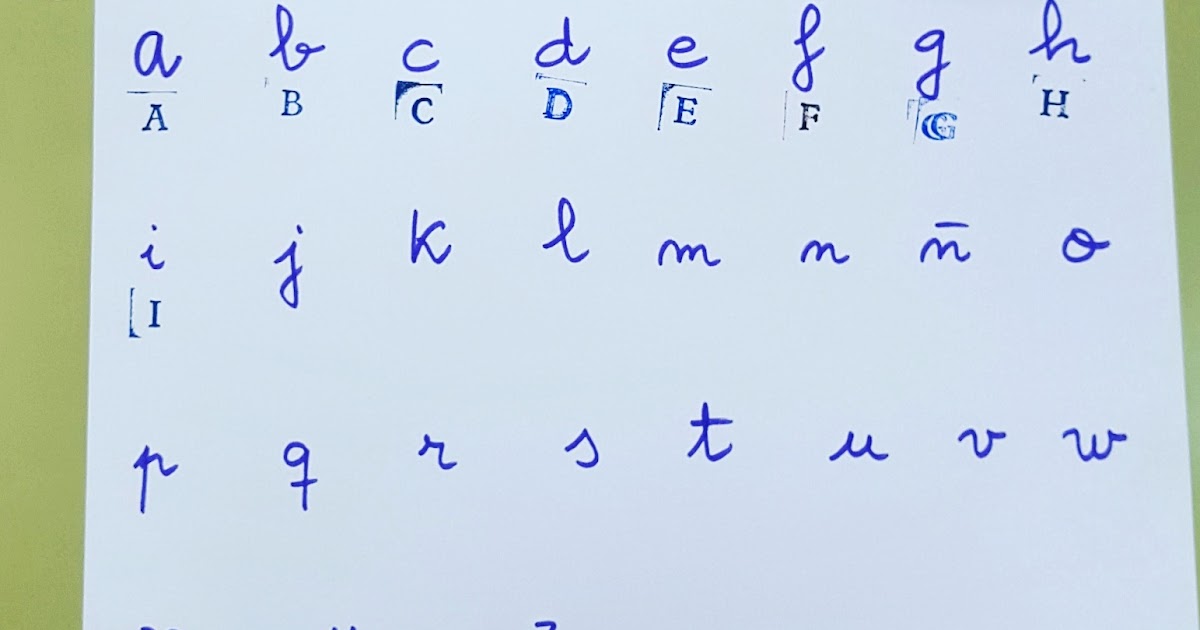 a b c d e f g h
A B C D E F G H
i j k l m n ñ o
I
p q r s t u v w